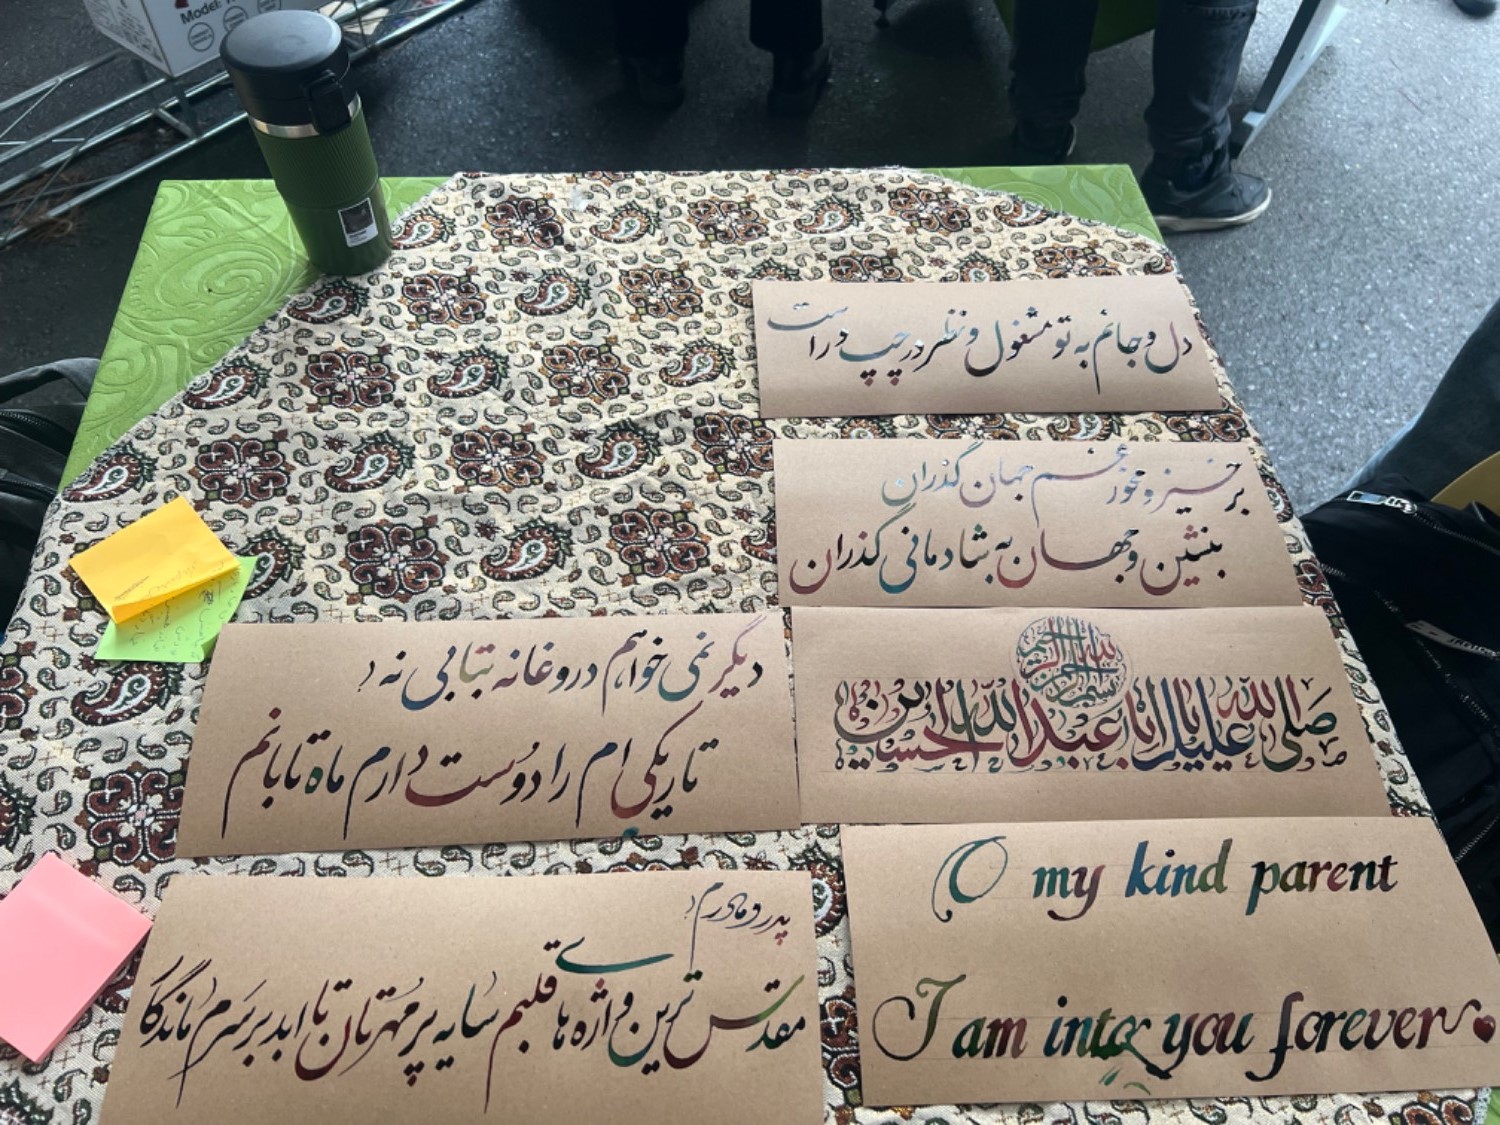 Model:
دل و جانم به تو مشغول و نظر در چپ و راست
بر خیز و مخور غم جهان گذران
بنشین و جهان به شادمانی گذران
صلی الله علیک یا ابا عبدالله الحسین
بسم الله الرحمن الرحیم
دیگر نمی خواهم دروغانه بتابی نه
تاریکی ام را دوست دارم ماه تابانم
پدر و مادرم
مقدس ترین واژه های قلبم سایه پر مهرتان تا ابد بر سرم ماندگار
O my kind parent
I am into you forever